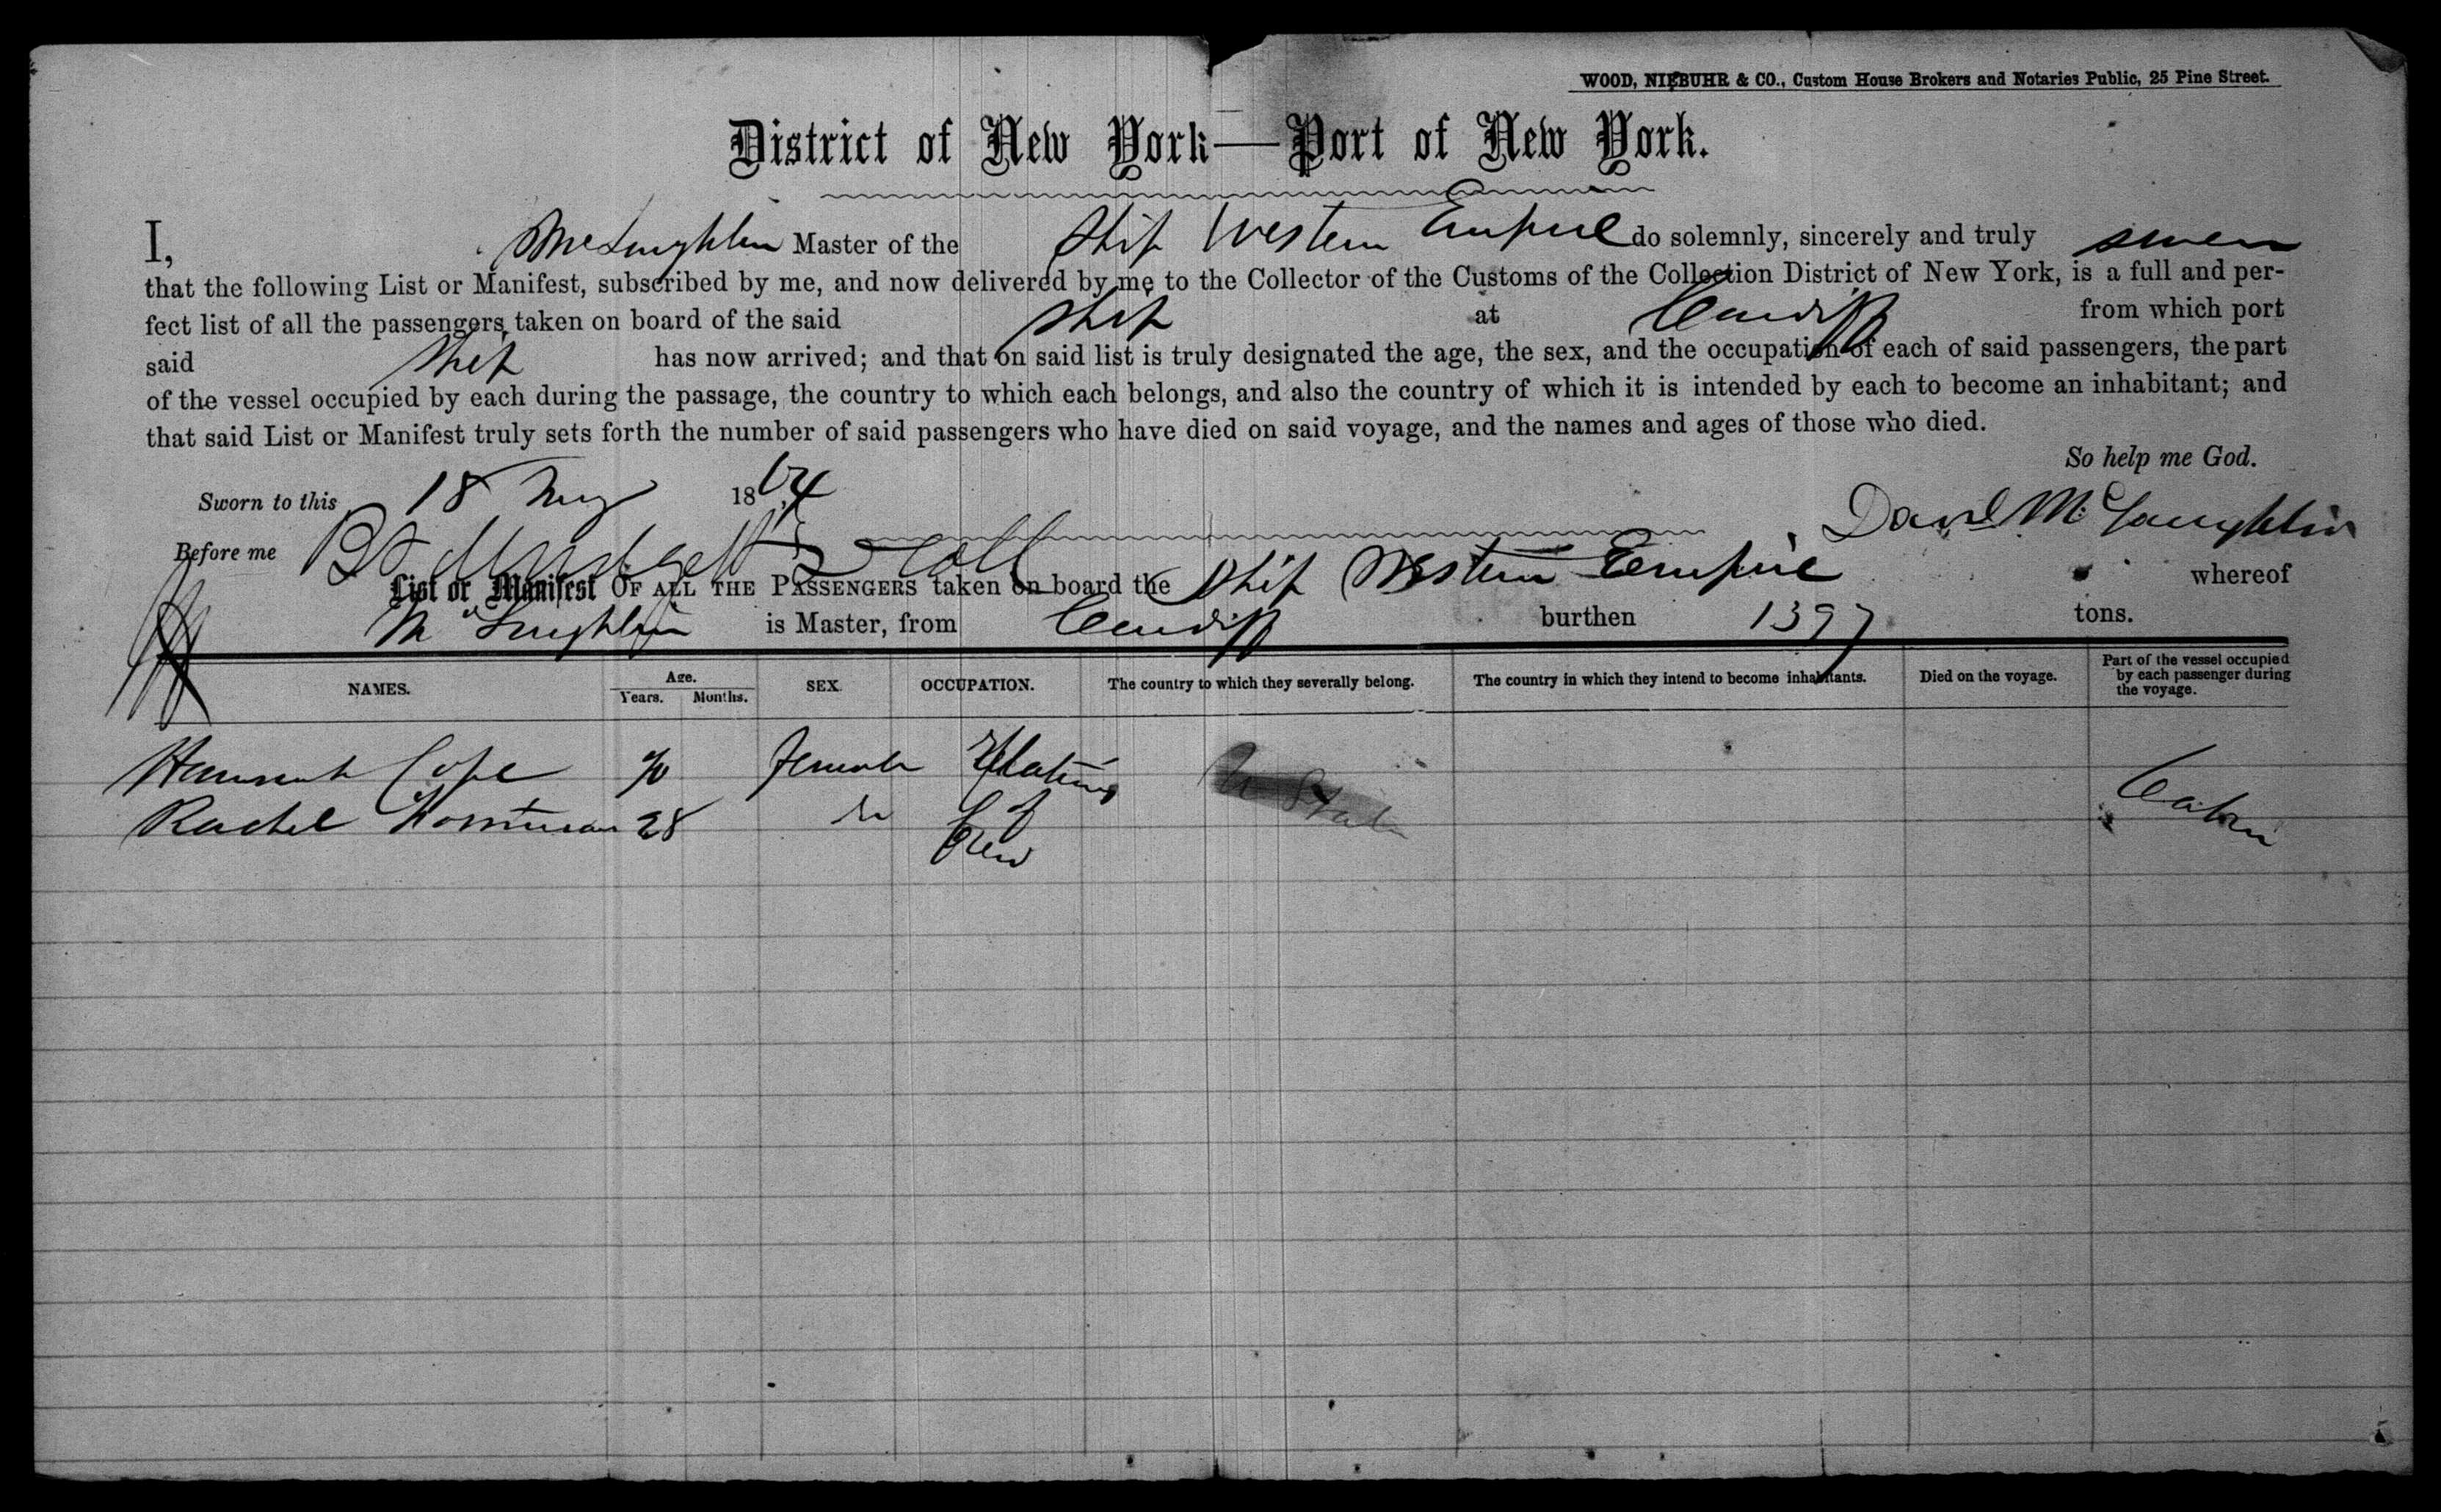 WOOD, NIEBUHR & CO., Custom House Brokers and Notaries Public, 25 Pine Street.
District of New York—Port of New York.
I, McLaughlin Master of the Ship Western Empire do solemnly, sincerely and truly swear
that the following List or Manifest, subscribed by me, and now delivered by me to the Collector of the Customs of the Collection District of New York, is a full and per-
fect list of all the passengers taken on board of the said ship at Cardiff from which port
said ship has now arrived; and that on said list is truly designated the age, the sex, and the occupation of each of said passengers, the part
of the vessel occupied by each during the passage, the country to which each belongs, and also the country of which it is intended by each to become an inhabitant; and
that said List or Manifest truly sets forth the number of said passengers who have died on said voyage, and the names and ages of those who died.
So help me God.
Sworn to this 18 1864
McLaughlin
Before me
List or Manifest OF ALL THE PASSENGERS taken on board the Ship Western Empire whereof
McLaughlin is Master, from Cardiff burthen 1397 tons.
NAMES. Age. Years. Months. SEX. OCCUPATION. The country to which they severally belong. The country in which they intend to become inhabitants. Died on the voyage. Part of the vessel occupied by each passenger during the voyage.
Hannah Cope Female
Rachel 28 Do of
Crew
Cabin